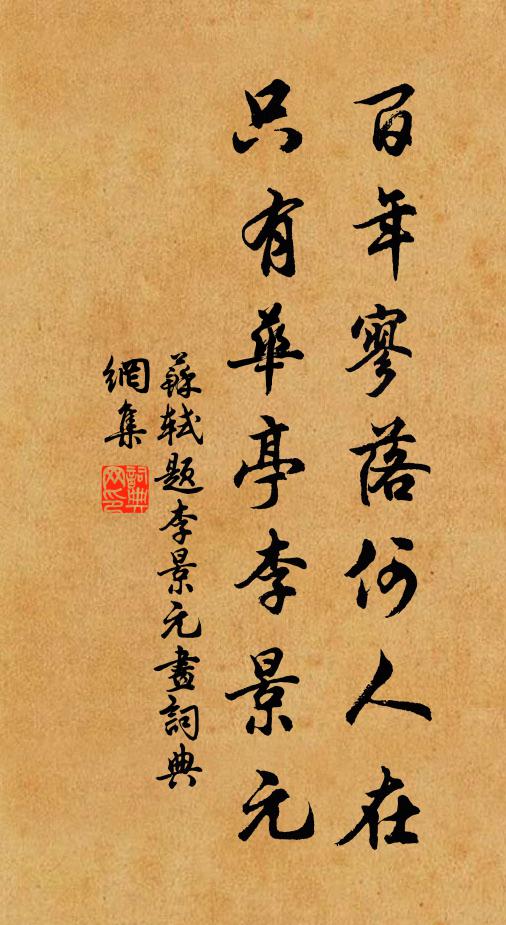 百年寥落何人在
只有華亭李景元
蘇軾題李景元畫詞典
網集
詞典網印